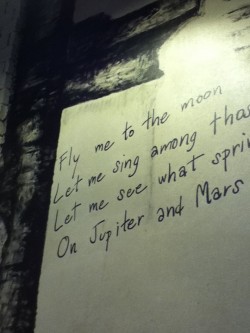 Fly me to the moon
Let me sing among thos
Let me see what sprin
On Jupiter and Mars